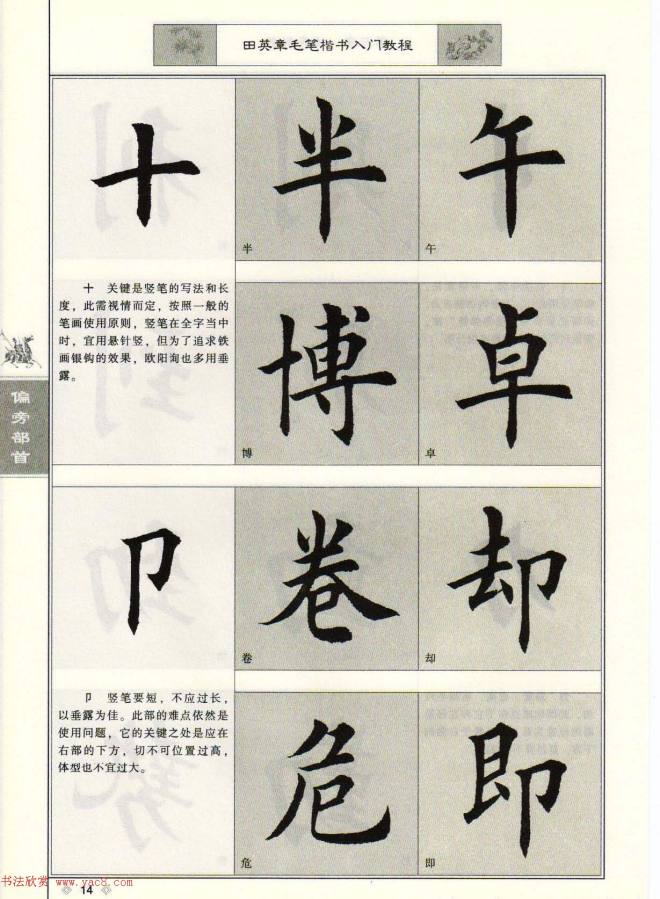 田英章毛笔楷书入门教程
十 半 午
半 午
十 关键是竖笔的写法和长
度，此需视情而定，按照一般的
笔画使用原则，竖笔在全字当中
时，宜用悬针竖，但为了追求铁
画银钩的效果，欧阳询也多用垂
露。
博 卓
博 卓
偏旁部首
卩 卷 却
卷 却
卩 竖笔要短，不应过长，
以垂露为佳。此部的难点依然是
使用问题，它的关键之处是应在
右部的下方，切不可位置过高，
体型也不宜过大。
危 即
危 即
书法欣赏 www.yac8.com
14